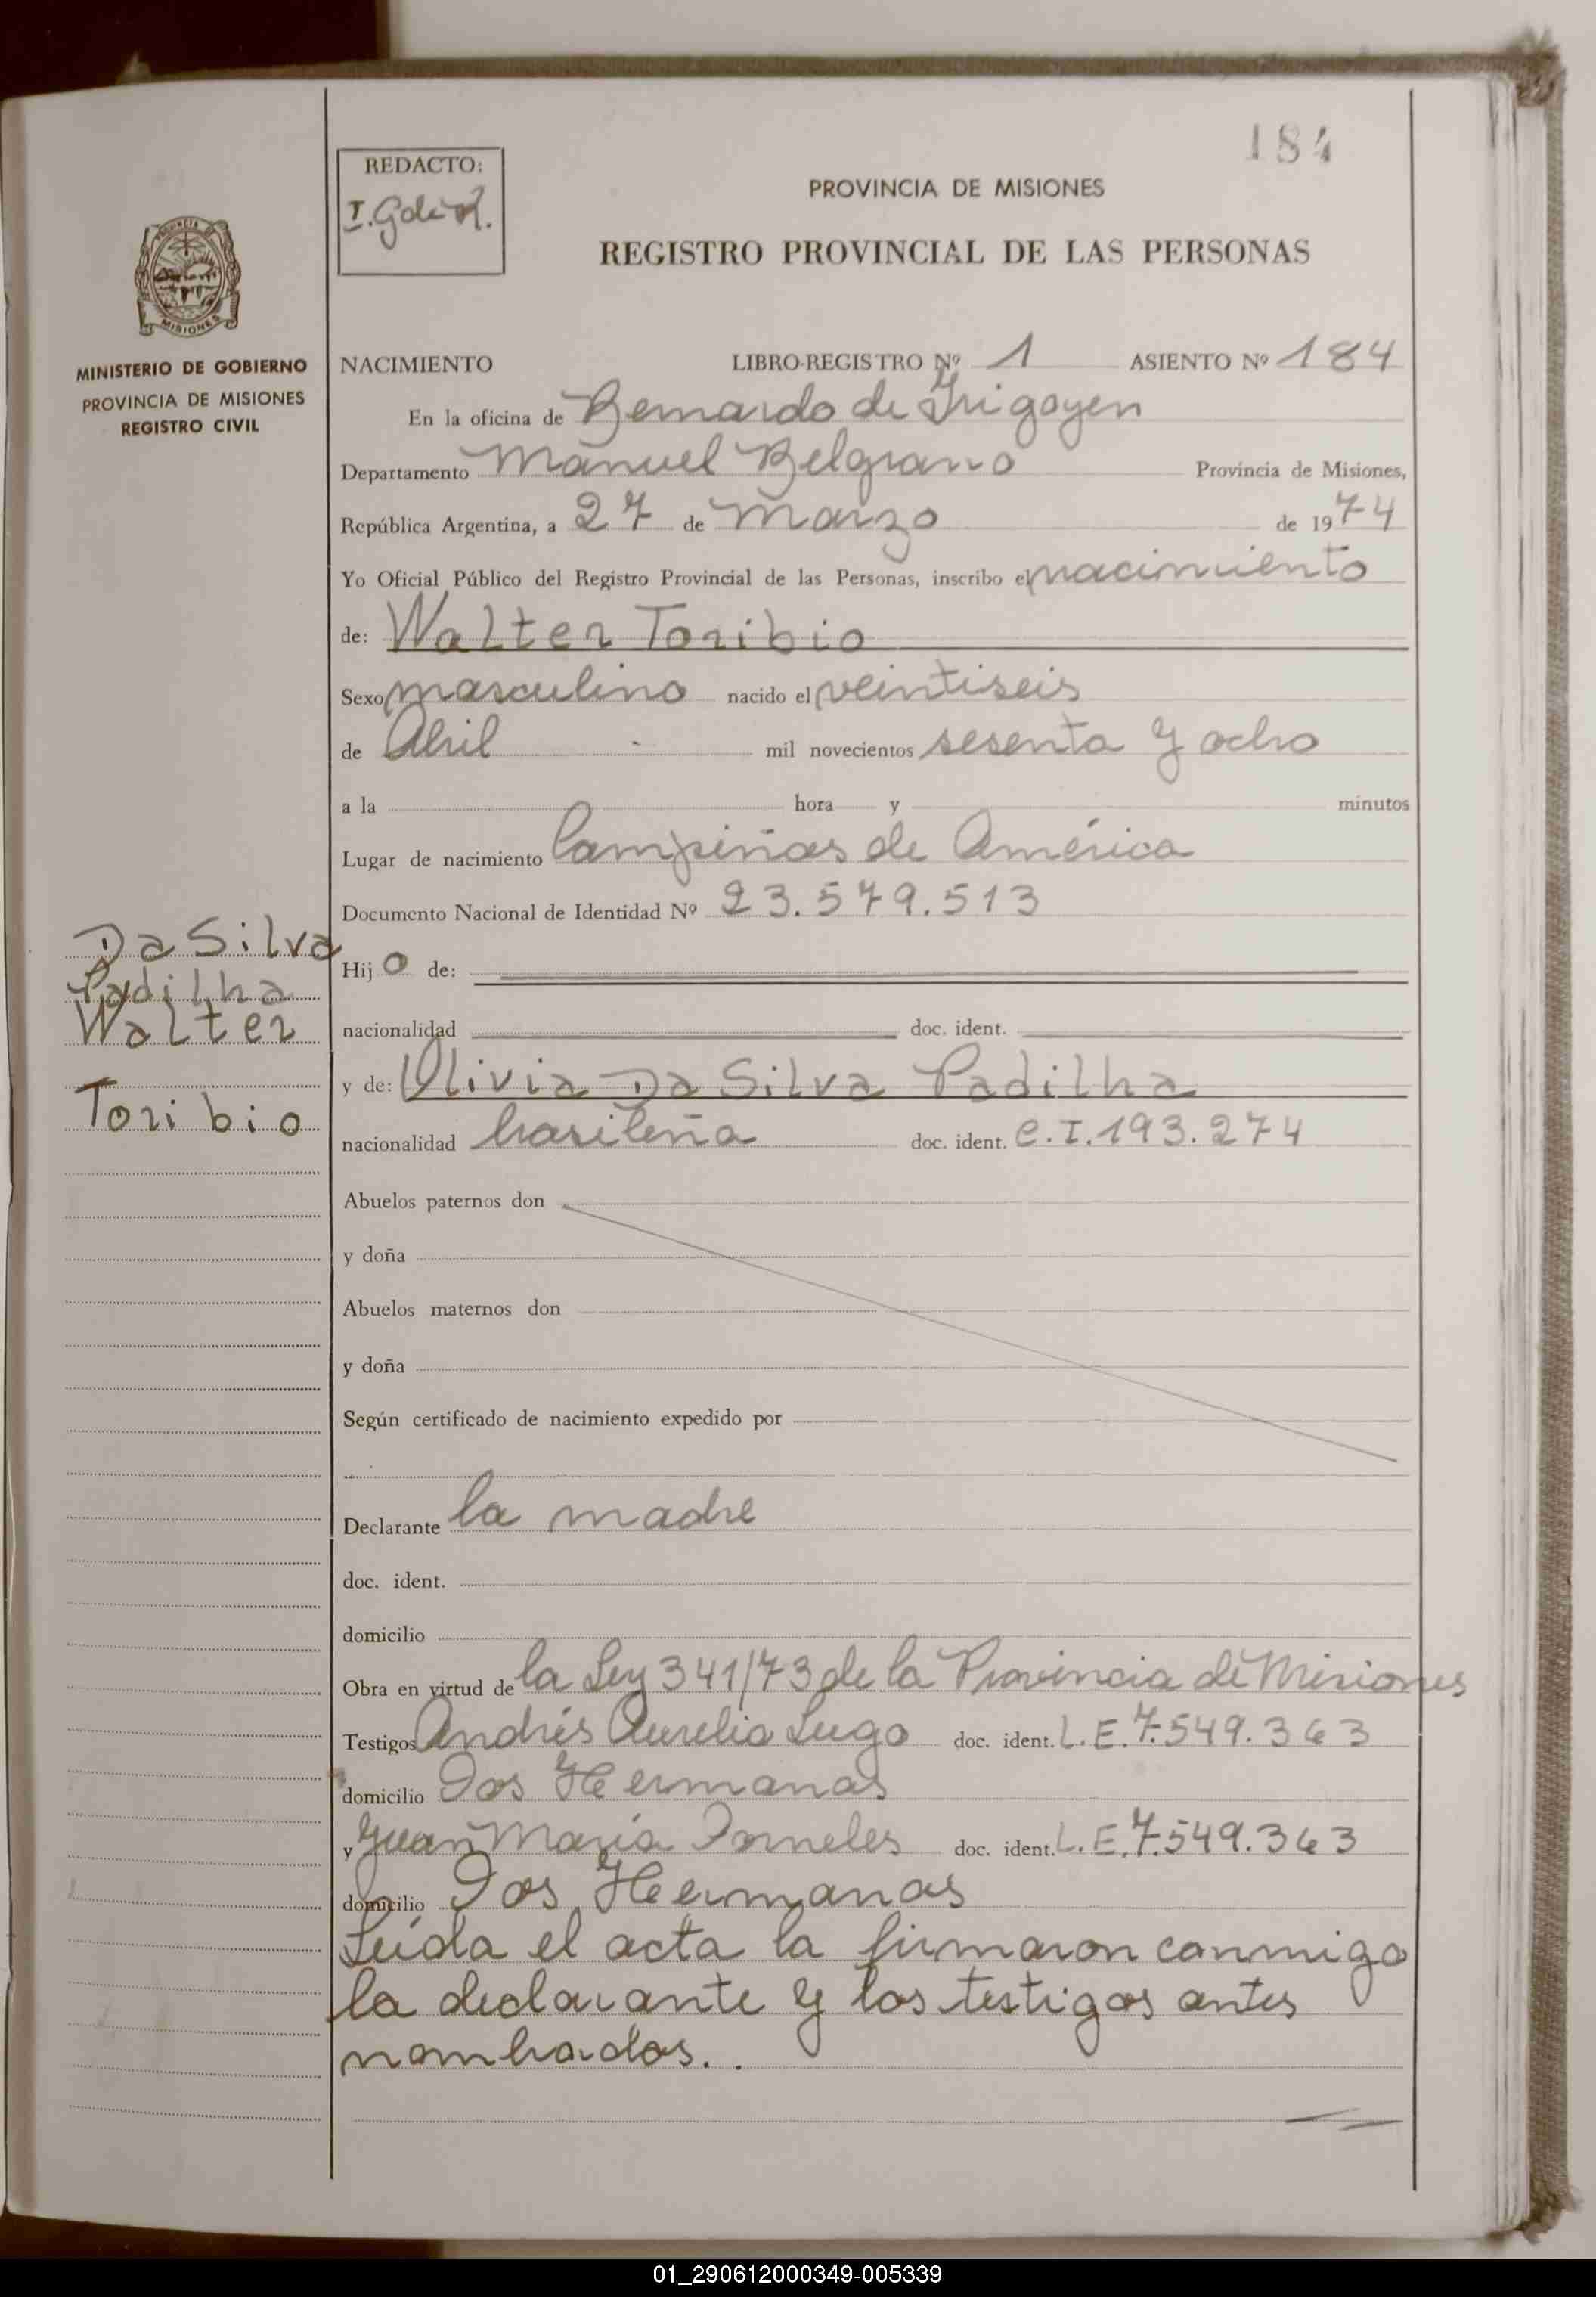 184
REDACTO:
PROVINCIA DE MISIONES
REGISTRO PROVINCIAL DE LAS PERSONAS
MISIONES
MINISTERIO DE GOBIERNO
PROVINCIA DE MISIONES
REGISTRO CIVIL
NACIMIENTO LIBRO-REGISTRO Nº 1 ASIENTO Nº 184
En la oficina de Bernardo de Irigoyen
Departamento Manuel Belgrano Provincia de Misiones,
República Argentina, a 27 de Marzo de 1974
Yo Oficial Público del Registro Provincial de las Personas, inscribo el nacimiento
de: Walter Toribio
Sexo masculino nacido el veintiseis
de Abril mil novecientos sesenta y ocho
a la hora y minutos
Lugar de nacimiento Campiñas de América
Documento Nacional de Identidad Nº 23.579.513
Da Silva
Padilha
Walter
Toribio
Hijo de:
nacionalidad doc. ident.
y de: Olivia Da Silva Padilha
nacionalidad brasileña doc. ident. C.I.193.274
Abuelos paternos don
y doña
Abuelos maternos don
y doña
Según certificado de nacimiento expedido por
Declarante la madre
doc. ident.
domicilio
Obra en virtud de la Ley 341/73 de la Provincia de Misiones
Testigos Andrés Aurelio Lugo doc. ident. L.E.7.549.363
domicilio Dos Hermanas
y Juan María Dorneles doc. ident. L.E.7.549.363
domicilio Dos Hermanas
Leída el acta la firmaron conmigo
la declarante y los testigos antes
nombrados..
01_290612000349-005339